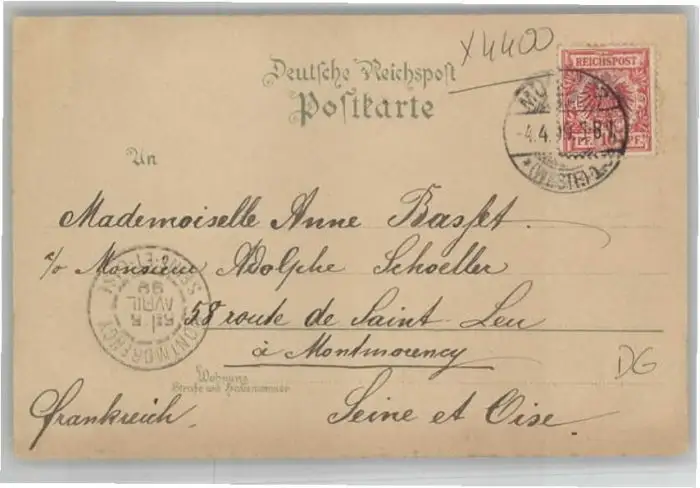 x4400
Deutsche Reichspost
Postkarte
REICHSPOST
PF. 10 PF.
-4.4.99.
(WESTF.)
An
Mademoiselle Anne Basset.
c/o Monsieur Adolphe Schoeller
58 route de Saint-Leu
à Montmorency
DG
MONTMORENCY
AVRIL
99
SEINE-ET-OISE
Wohnung
Straße und Hausnummer
Frankreich.
Seine et Oise.